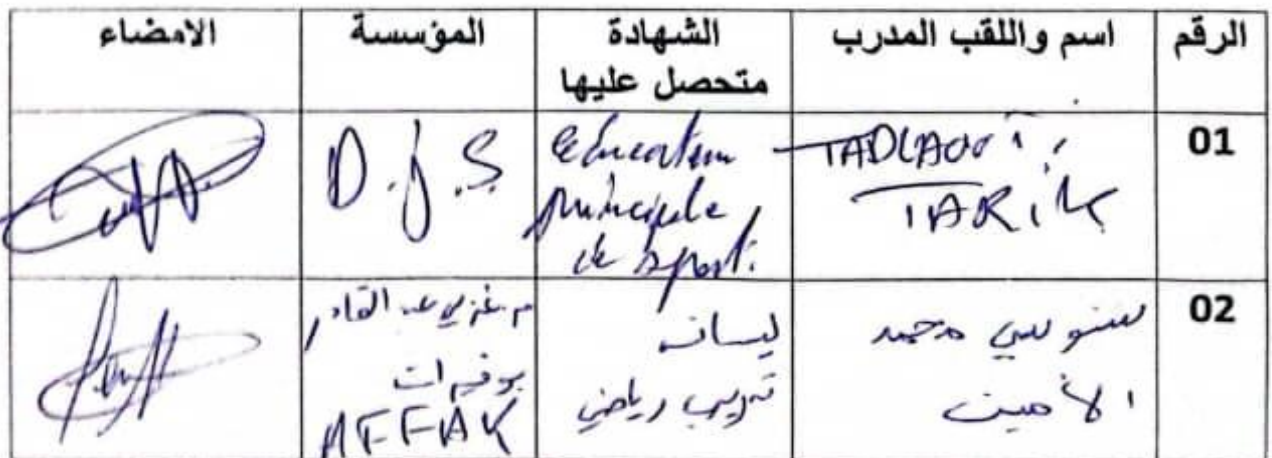 الرقم	اسم واللقب المدرب	الشهادة متحصل عليها	المؤسسة	الامضاء
01
TADLAOUi
TARiK
educateur
principale
de sport.
D.J.S
02
سنوسي محمد
الأمين
ليسانس
تدريب رياضي
عبد القادر
بوقيرات
AFFAK